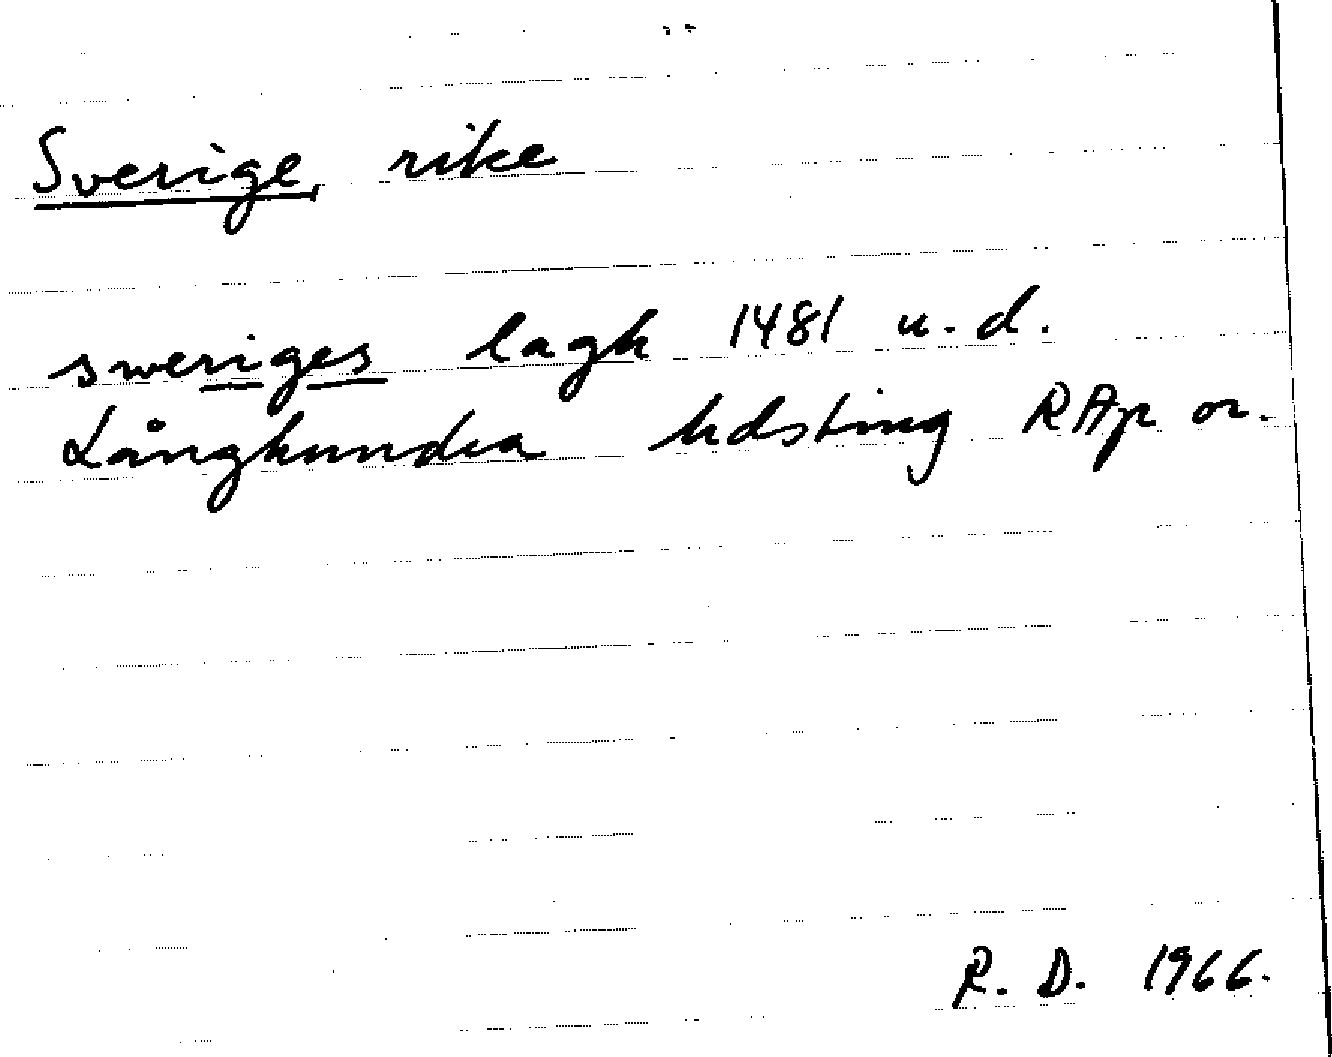 Sverige, rike
sweriges lagh 1481 u.d.
Långhundra hdsting RAp or.
R. D. 1966.